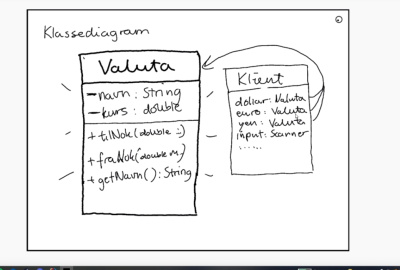 Klassediagram
Valuta
-navn: String
-kurs: double
+ tilNok(double
+ fraNok(double
+ getNavn(): String
Klient
dollar: Valuta
euro: Valuta
yen: Valuta
input: Scanner
......